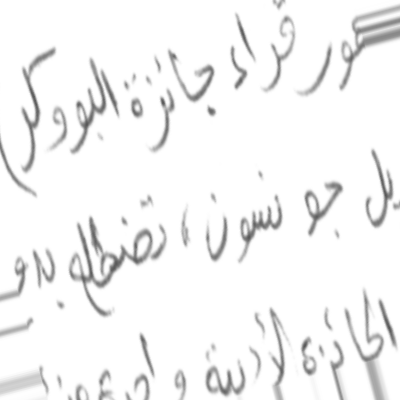 ور قراء جائزة البووكر
يل جونسون، تضطلع بدو
الجائزة لأدبية و